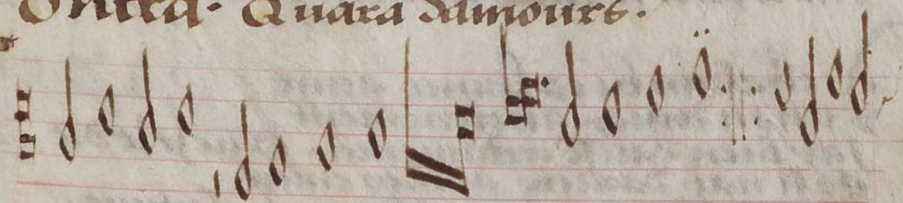 Contra· Quara damours·